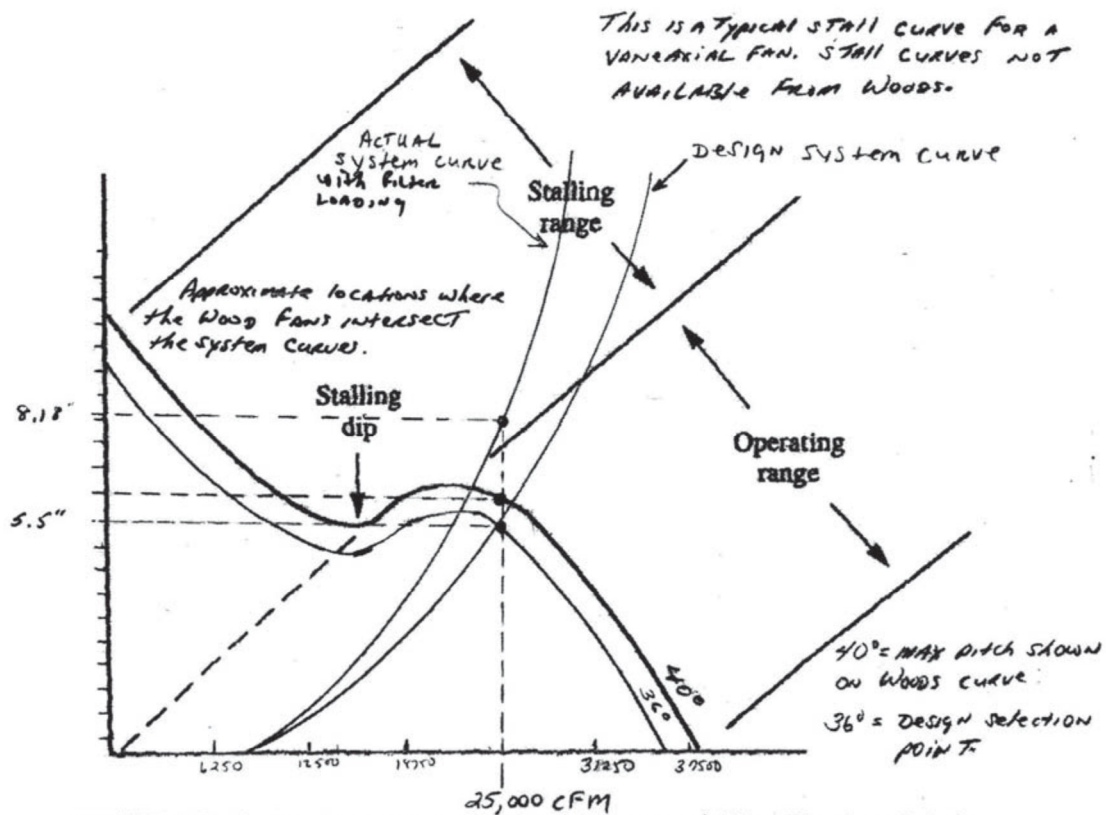 This is a Typical stall curve for a
vaneaxial fan. Stall curves not
available from Woods.
Actual
system curve
with filter
loading
Design system curve
Stalling
range
Approximate locations where
the Wood fans intersect
the system curves.
8.18"
Stalling
dip
Operating
range
5.5"
40° = max pitch shown
on Woods curve
36° = Design selection
point.
36°
40°
6250
12500
18750
31250
37500
25,000 CFM